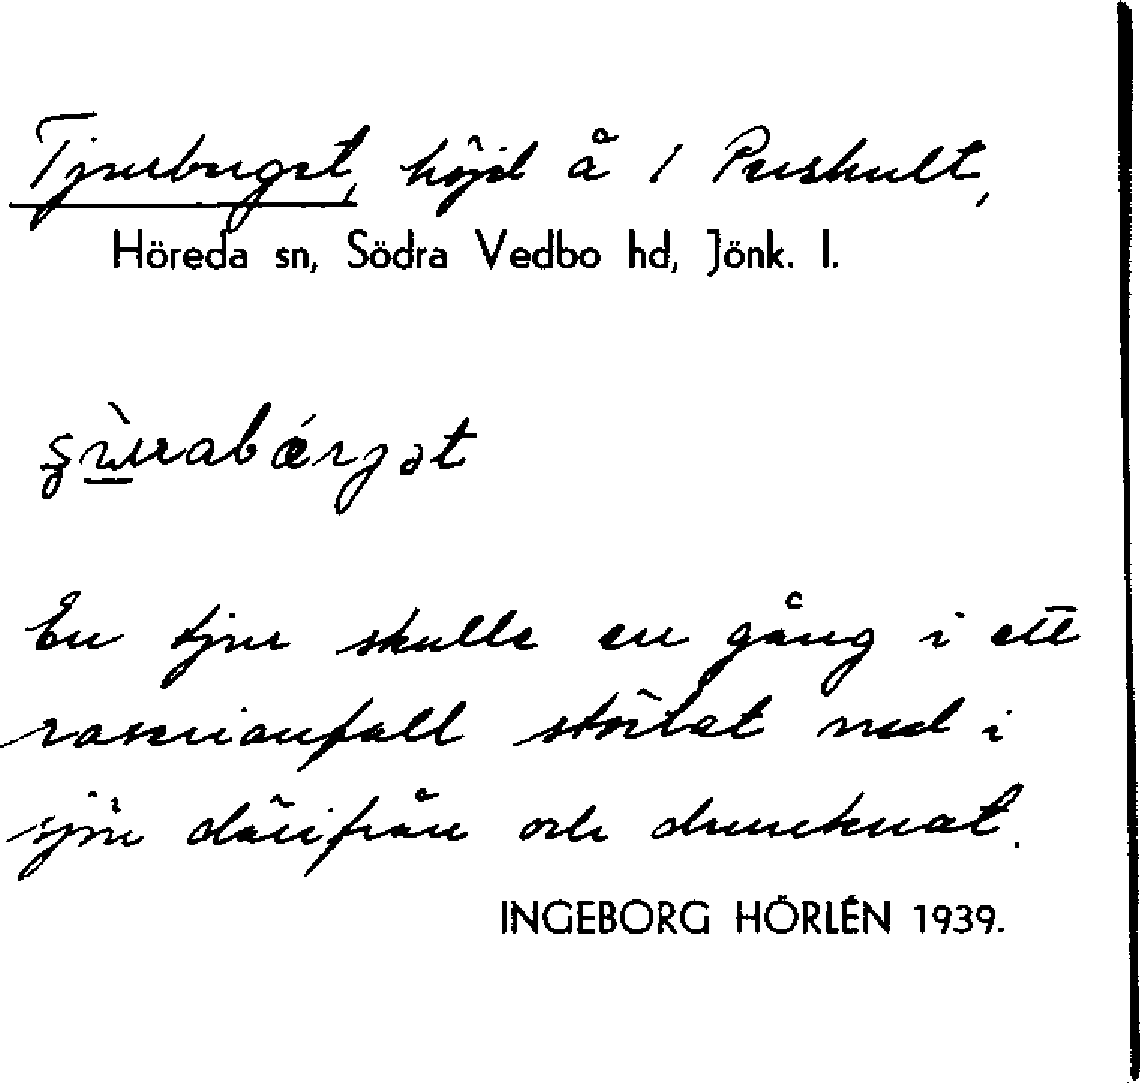 Tjurberget, höjd å 1 Pershult,
Höreda sn, Södra Vedbo hd, Jönk. l.
En tjur skulle en gång i ett
raserianfall störtat ned i
sjön därifrån och drunknat.
INGEBORG HÖRLÉN 1939.